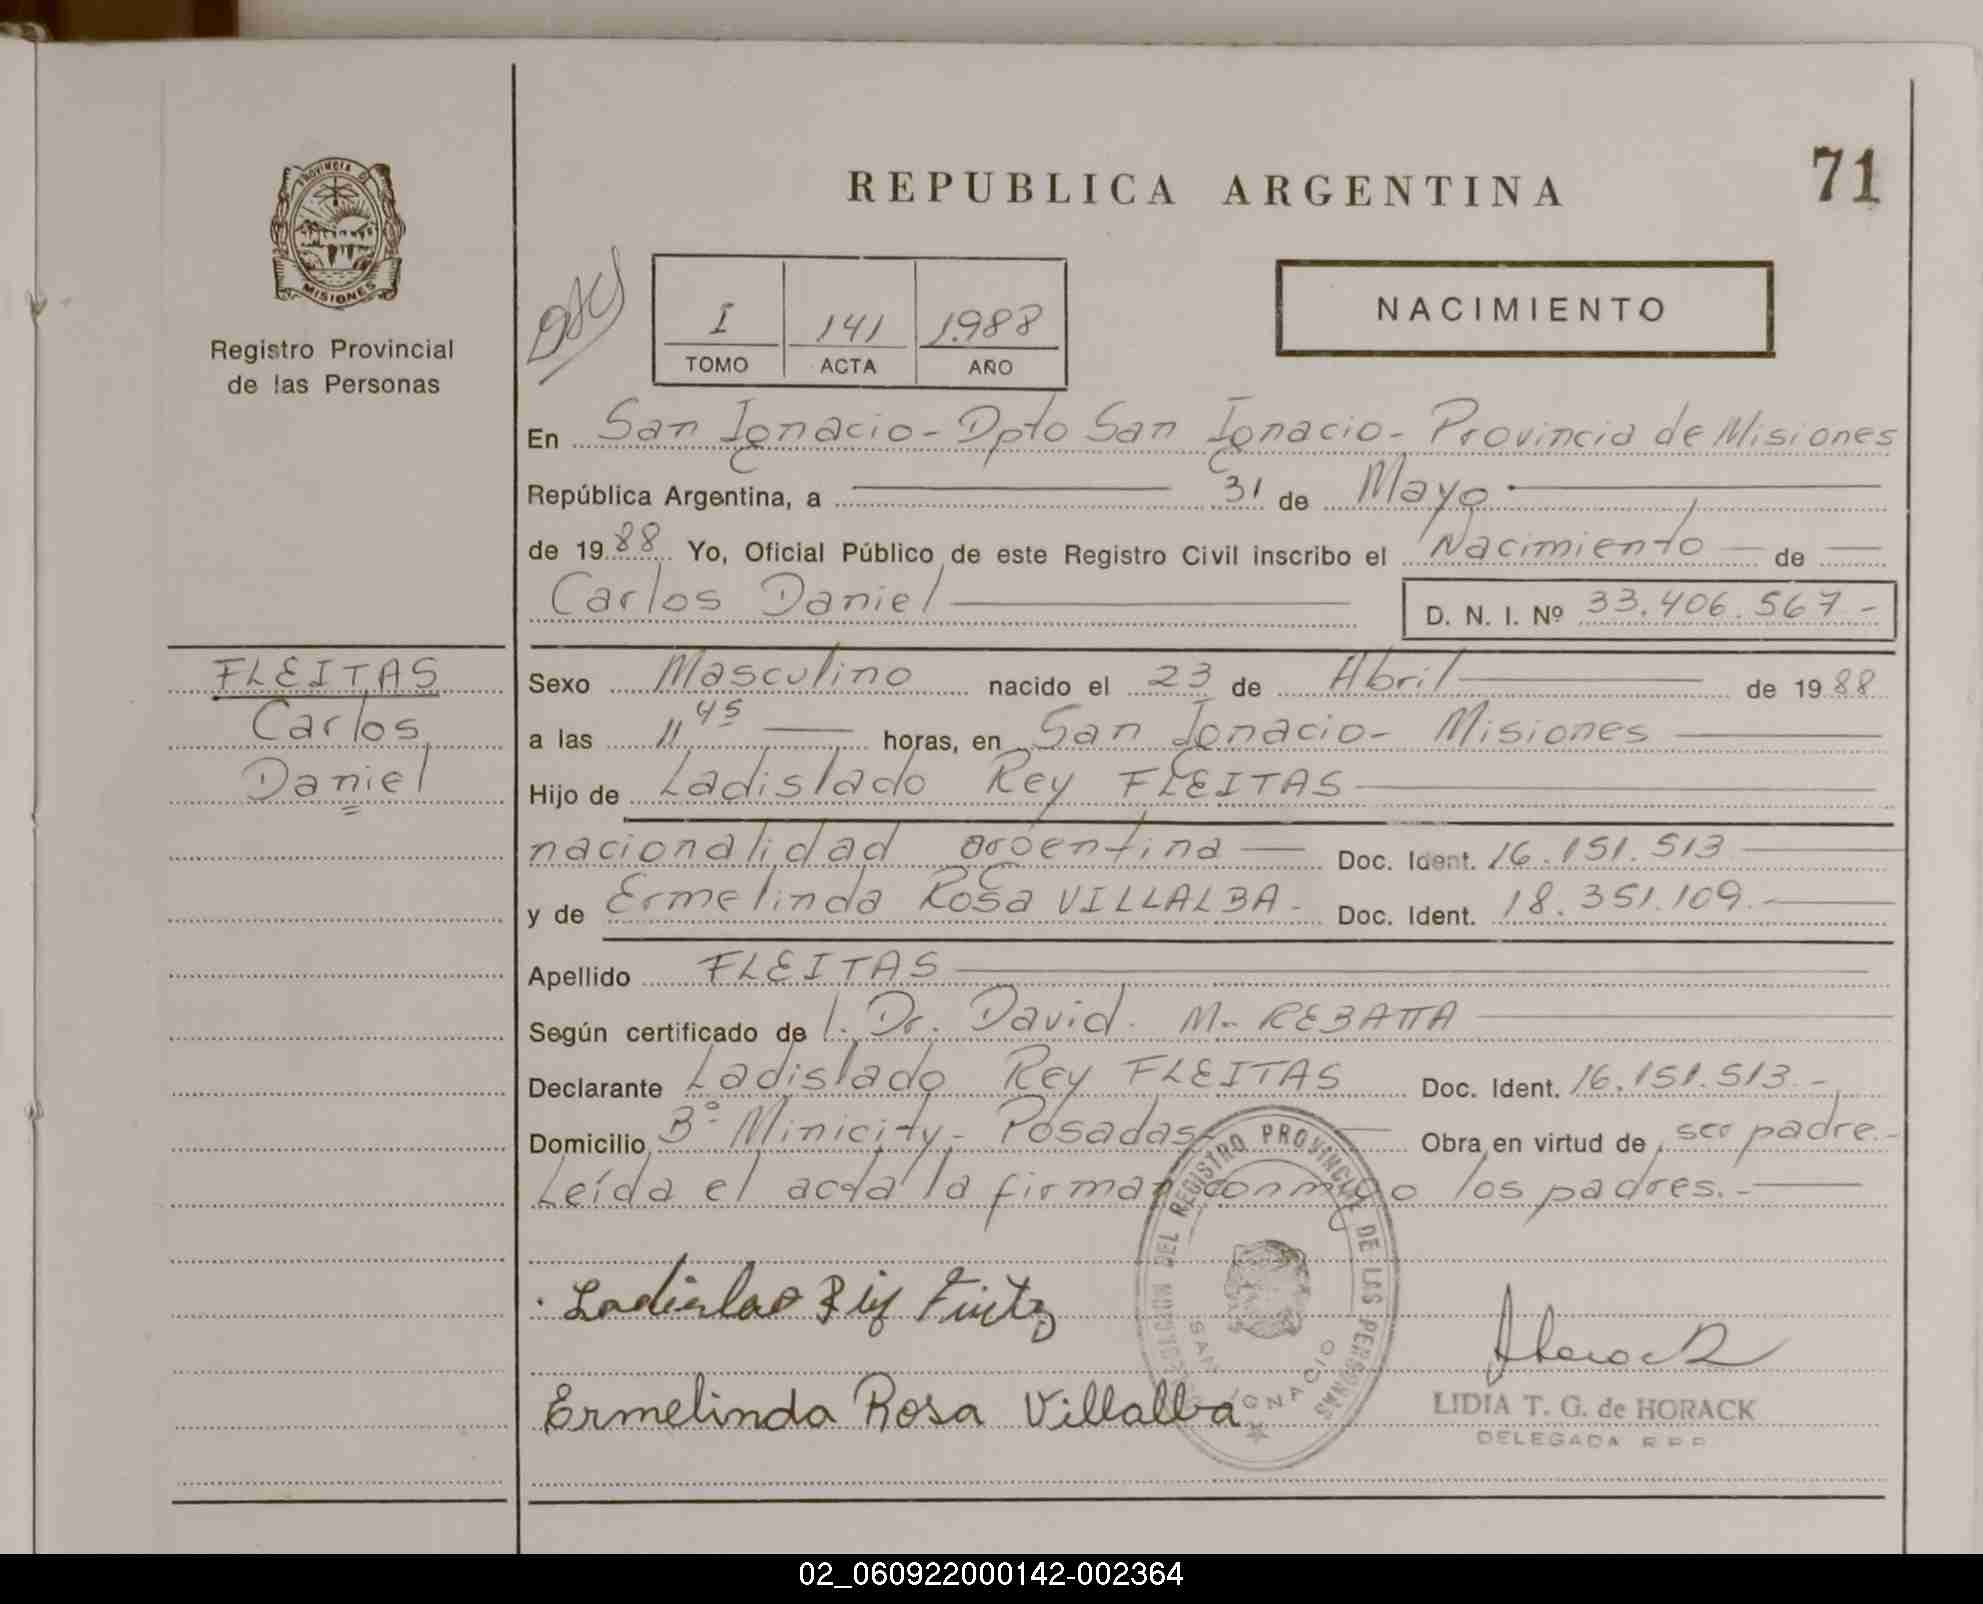 71
REPUBLICA ARGENTINA
PROVINCIA DE
MISIONES
Registro Provincial
de las Personas
I 141 1.988
TOMO ACTA AÑO
NACIMIENTO
En San Ignacio - Dpto San Ignacio - Provincia de Misiones
República Argentina, a 31 de Mayo
de 1988 Yo, Oficial Público de este Registro Civil inscribo el Nacimiento de
Carlos Daniel D. N. I. Nº 33.406.567-
FLEITAS
Carlos
Daniel
Sexo Masculino nacido el 23 de Abril de 1988
a las 11 45 horas, en San Ignacio - Misiones
Hijo de Ladislado Rey FLEITAS
nacionalidad argentina Doc. Ident. 16.151.513
y de Ermelinda Rosa VILLALBA - Doc. Ident. 18.351.109.-
Apellido FLEITAS
Según certificado de l. Dr. David. M. REBATTA
Declarante Ladislado Rey FLEITAS Doc. Ident. 16.151.513.-
Domicilio Bº Minicity - Posadas - Obra en virtud de ser padre.-
Leída el acta la firman conmigo los padres.-
DEL REGISTRO PROVINCIAL DE LAS PERSONAS
SAN IGNACIO
Ladislao Rey
Ermelinda Rosa Villalba
LIDIA T. G. de HORACK
DELEGADA R.P.P.
02_060922000142-002364